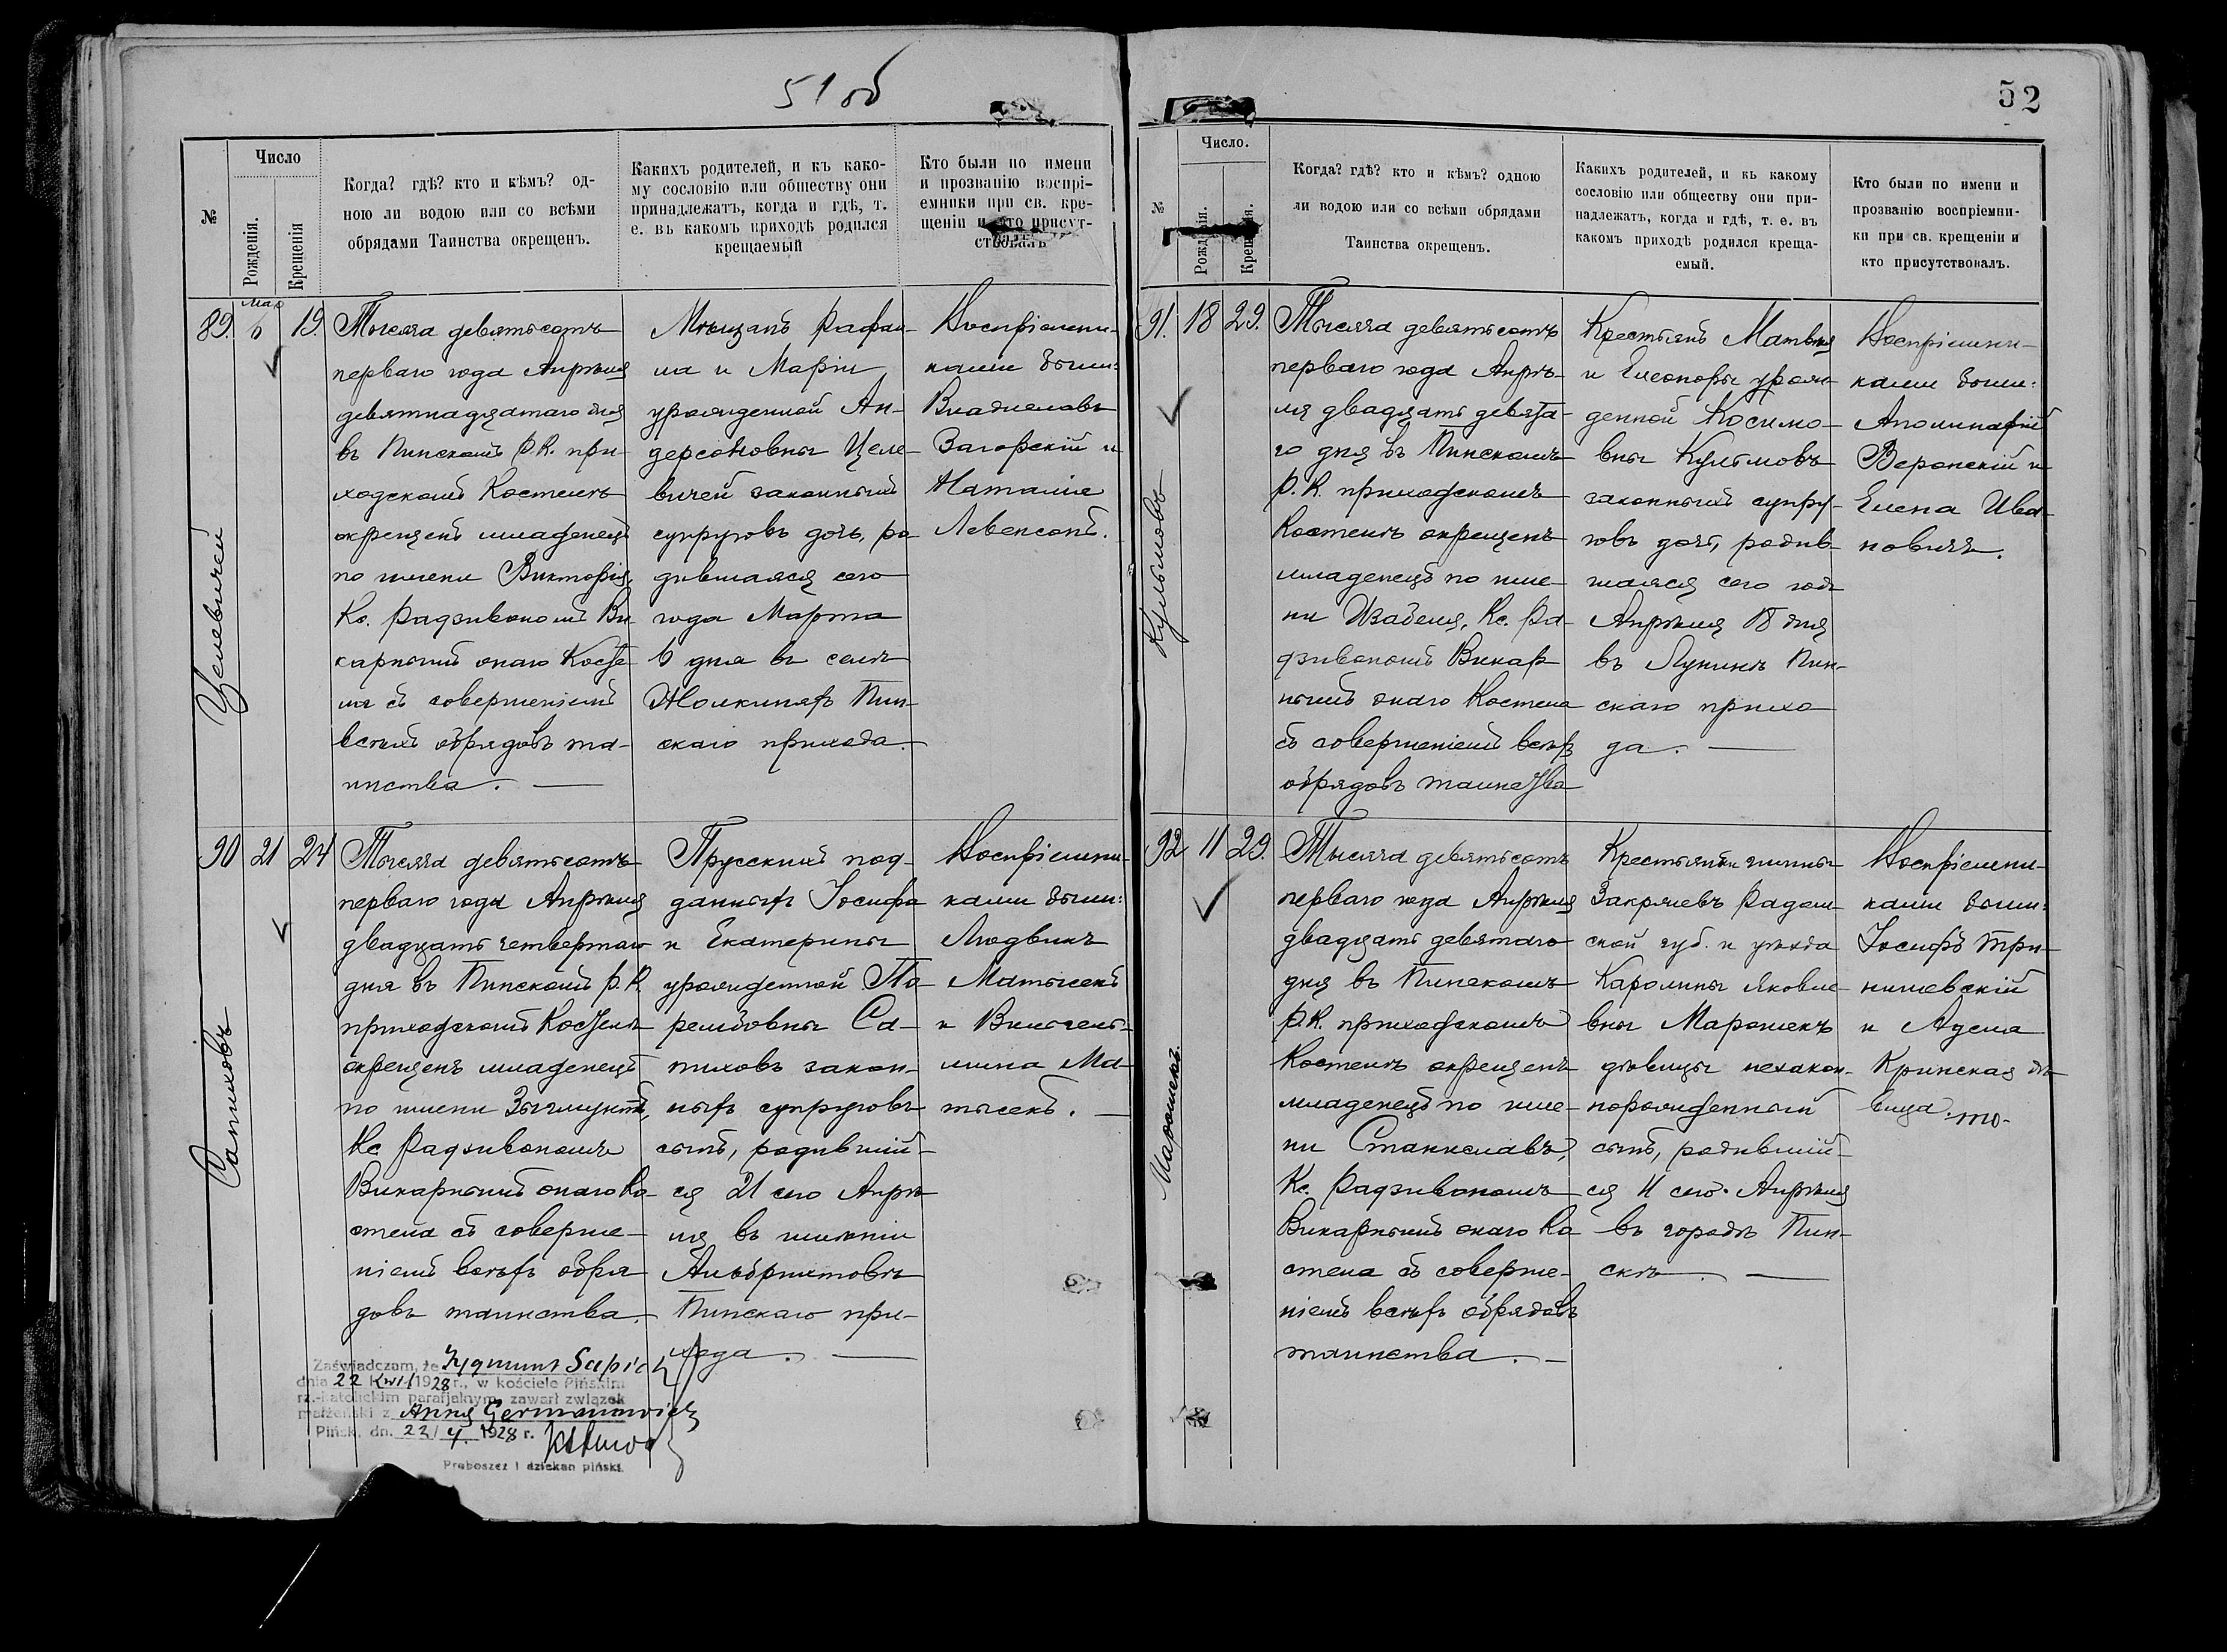 51 об
№
Число
Рожденія.
Крещенія
Когда? гдѣ? кто и кѣмъ? од-
ною ли водою или со всѣми
обрядами Таинства окрещенъ.
Какихъ родителей, и къ како-
му сословію или обществу они
принадлежатъ, когда и гдѣ, т.
е. въ какомъ приходѣ родился
крещаемый
Кто были по имени
и прозванію воспрі-
емники при св. кре-
щеніи и кто присут-
ствовалъ
89.
Мар
6
19.
Целевичей
Тысяча девятьсотъ
перваго года Апрѣля
девятнадцатаго дня
въ Пинскомъ Р.К. при-
ходскомъ Костелѣ
окрещенъ младенецъ
по имени Викторія,
Кс. Радзивономъ Ви-
карнымъ онаго Косте
ла съ совершеніемъ
всѣхъ обрядовъ та-
инства.
Мѣщанъ Рафаи-
ла и Маріи
урожденной Ан-
дерсоновны Целе-
вичей законныхъ
супруговъ дочь, ро-
дившаяся сего
года Марта
6 дня въ селѣ
Жолкинѣ Пин-
скаго прихода.
Воспріемни-
ками были:
Владиславъ
Загорскій и
Наталіе
Левенсонъ.
90
21
24
Сапиховъ
Тысяча девятьсотъ
перваго года Апрѣля
двадцать четвертаго
дня въ Пинскомъ Р.К.
приходскомъ Костелѣ
окрещенъ младенецъ
по имени Зыгмунтъ,
Кс Радзивономъ
Викарнымъ онаго Ко-
стела съ соверше-
ніемъ всѣхъ обря
довъ таинства.
Прусскихъ под-
данныхъ Іосифа
и Екатерины
урожденной
Са-
пиховъ закон-
ныхъ супруговъ
сынъ, родившій-
ся 21 сего Апрѣ
ля въ имѣніи
Альбрихтовѣ
Пинскаго при-
хода.
Воспріемни-
ками были:
Людвикъ
Матысекъ
и Вильгель-
мина Ма-
тысекъ.
Zaświadczam, że Zygmunt Sapich
dnia 22 Kwi 1928 r., w kościele Pińskim
rz.-katolickim parafjalnym, zawarł związek
małżeński z Anną Germanowicz
Pińsk, dn. 23/4. 1928 r.
Proboszcz i dziekan piński.
52
№
Число.
Рожденія.
Крещен.
Когда? гдѣ? кто и кѣмъ? одною
ли водою или со всѣми обрядами
Таинства окрещенъ.
Какихъ родителей, и къ какому
сословію или обществу они при-
надлежатъ, когда и гдѣ, т. е. въ
какомъ приходѣ родился креща-
емый.
Кто были по имени и
прозванію воспріемни-
ки при св. крещеніи и
кто присутствовалъ.
91.
18
29.
Кульмовъ
Тысяча девятьсотъ
перваго года Апрѣ-
ля двадцать девята-
го дня въ Пинскомъ
Р.К. приходскомъ
Костелѣ окрещенъ
младенецъ по име-
ни Изабеля, Кс. Ра-
дзивономъ Викар-
нымъ онаго Костела
съ совершеніемъ всѣхъ
обрядовъ таинства
Крестьянъ Матвѣя
и Елеоноры урож-
денной Косимо-
вны Кульмовъ
законныхъ супру-
говъ дочь, родив-
шаяся сего года
Апрѣля 18 дня
въ Лунинѣ Пин-
скаго прихо
да.
Воспріемни-
ками были:
Аполинарій
Веронскій и
Елена Ива-
новичъ.
92
11
29.
Марошекъ.
Тысяча девятьсотъ
перваго года Апрѣля
двадцать девятаго
дня въ Пинскомъ
Р.К. приходскомъ
Костелѣ окрещенъ
младенецъ по име-
ни Станиславъ,
Кс. Радзивономъ
Викарнымъ онаго Ко
стела съ соверше-
ніемъ всѣхъ обрядовъ
таинства.
Крестьянки гмины
Закржевъ Радом-
ской губ. и уѣзда
Каролины Яковле-
вны Марошекъ
дѣвицы незакон-
норожденный
сынъ, родившій-
ся 11 сего Апрѣля
въ городѣ Пин-
скѣ.
Воспріемни-
ками были:
Іосифъ
и
Кринская дѣ
вица.